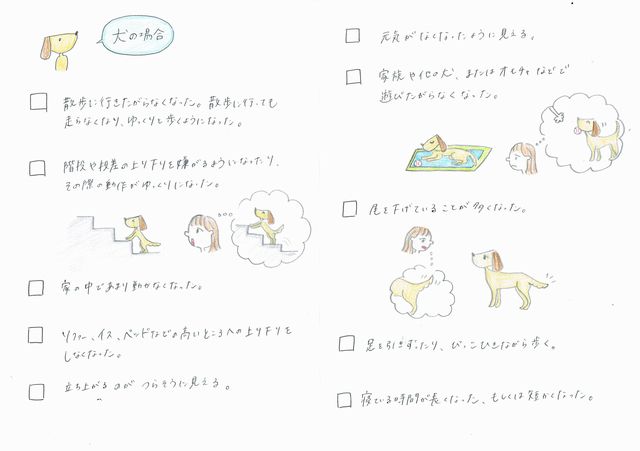 犬の場合
散歩に行きたがらなくなった。散歩に行っても
走らなくなり、ゆっくりと歩くようになった。
階段や段差の上り下りを嫌がるようになったり、
その際の動作がゆっくりになった。
家の中であまり動かなくなった。
ソファー、イス、ベッドなどの高いところへの上り下りを
しなくなった。
立ち上がるのがつらそうに見える。
元気がなくなったように見える。
家族や他の犬、またはオモチャなどで
遊びたがらなくなった。
尾を下げていることが多くなった。
足を引きずったり、びっこひきながら歩く。
寝ている時間が長くなった、もしくは短かくなった。